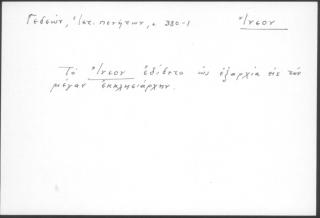 Γεδεών, Ἱστ. πενήτων, σ. 380-1 Ἴνσον
Τὸ Ἴνσον ἐδίδετο ὡς ἐξαρχία εἰς τὸν
μέγαν ἐκκλησιάρχην.